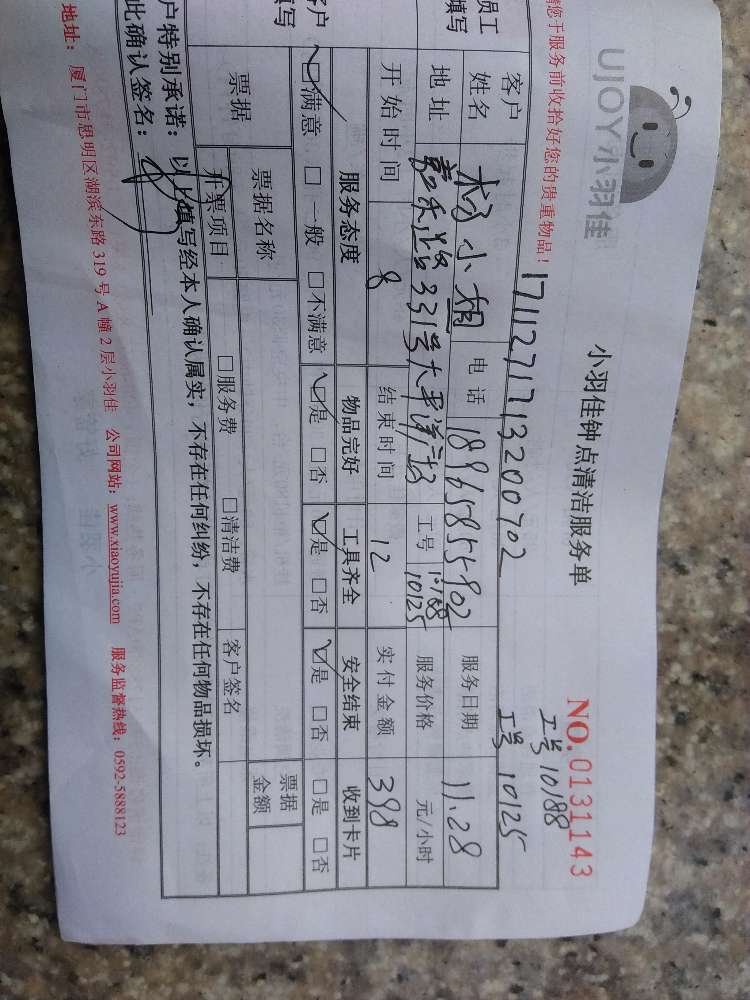 UJOY小羽佳
小羽佳钟点清洁服务单
NO.0131143
工号 10188
1711271713200702
工号 10125
请您于服务前收拾好您的贵重物品！
员工填写
客户姓名 小姐 电话 18965855902 服务日期 11.28
地址 嘉禾路331号 工号 10188 10125 服务价格 元/小时
开始时间 8 结束时间 12 实付金额 398
客户填写
服务态度 物品完好 工具齐全 安全结束 收到卡片
☑满意 □一般 □不满意 ☑是 □否 ☑是 □否 ☑是 □否 □是 □否
票据 票据名称 票据金额
开票项目 □服务费 □清洁费 客户签名
户特别承诺：以上填写经本人确认属实，不存在任何纠纷，不存在任何物品损坏。
此确认签名：
地址：厦门市思明区湖滨东路 319 号 A 幢 2 层小羽佳 公司网站：www.xiaoyujia.com 服务监督热线：0592-5888123